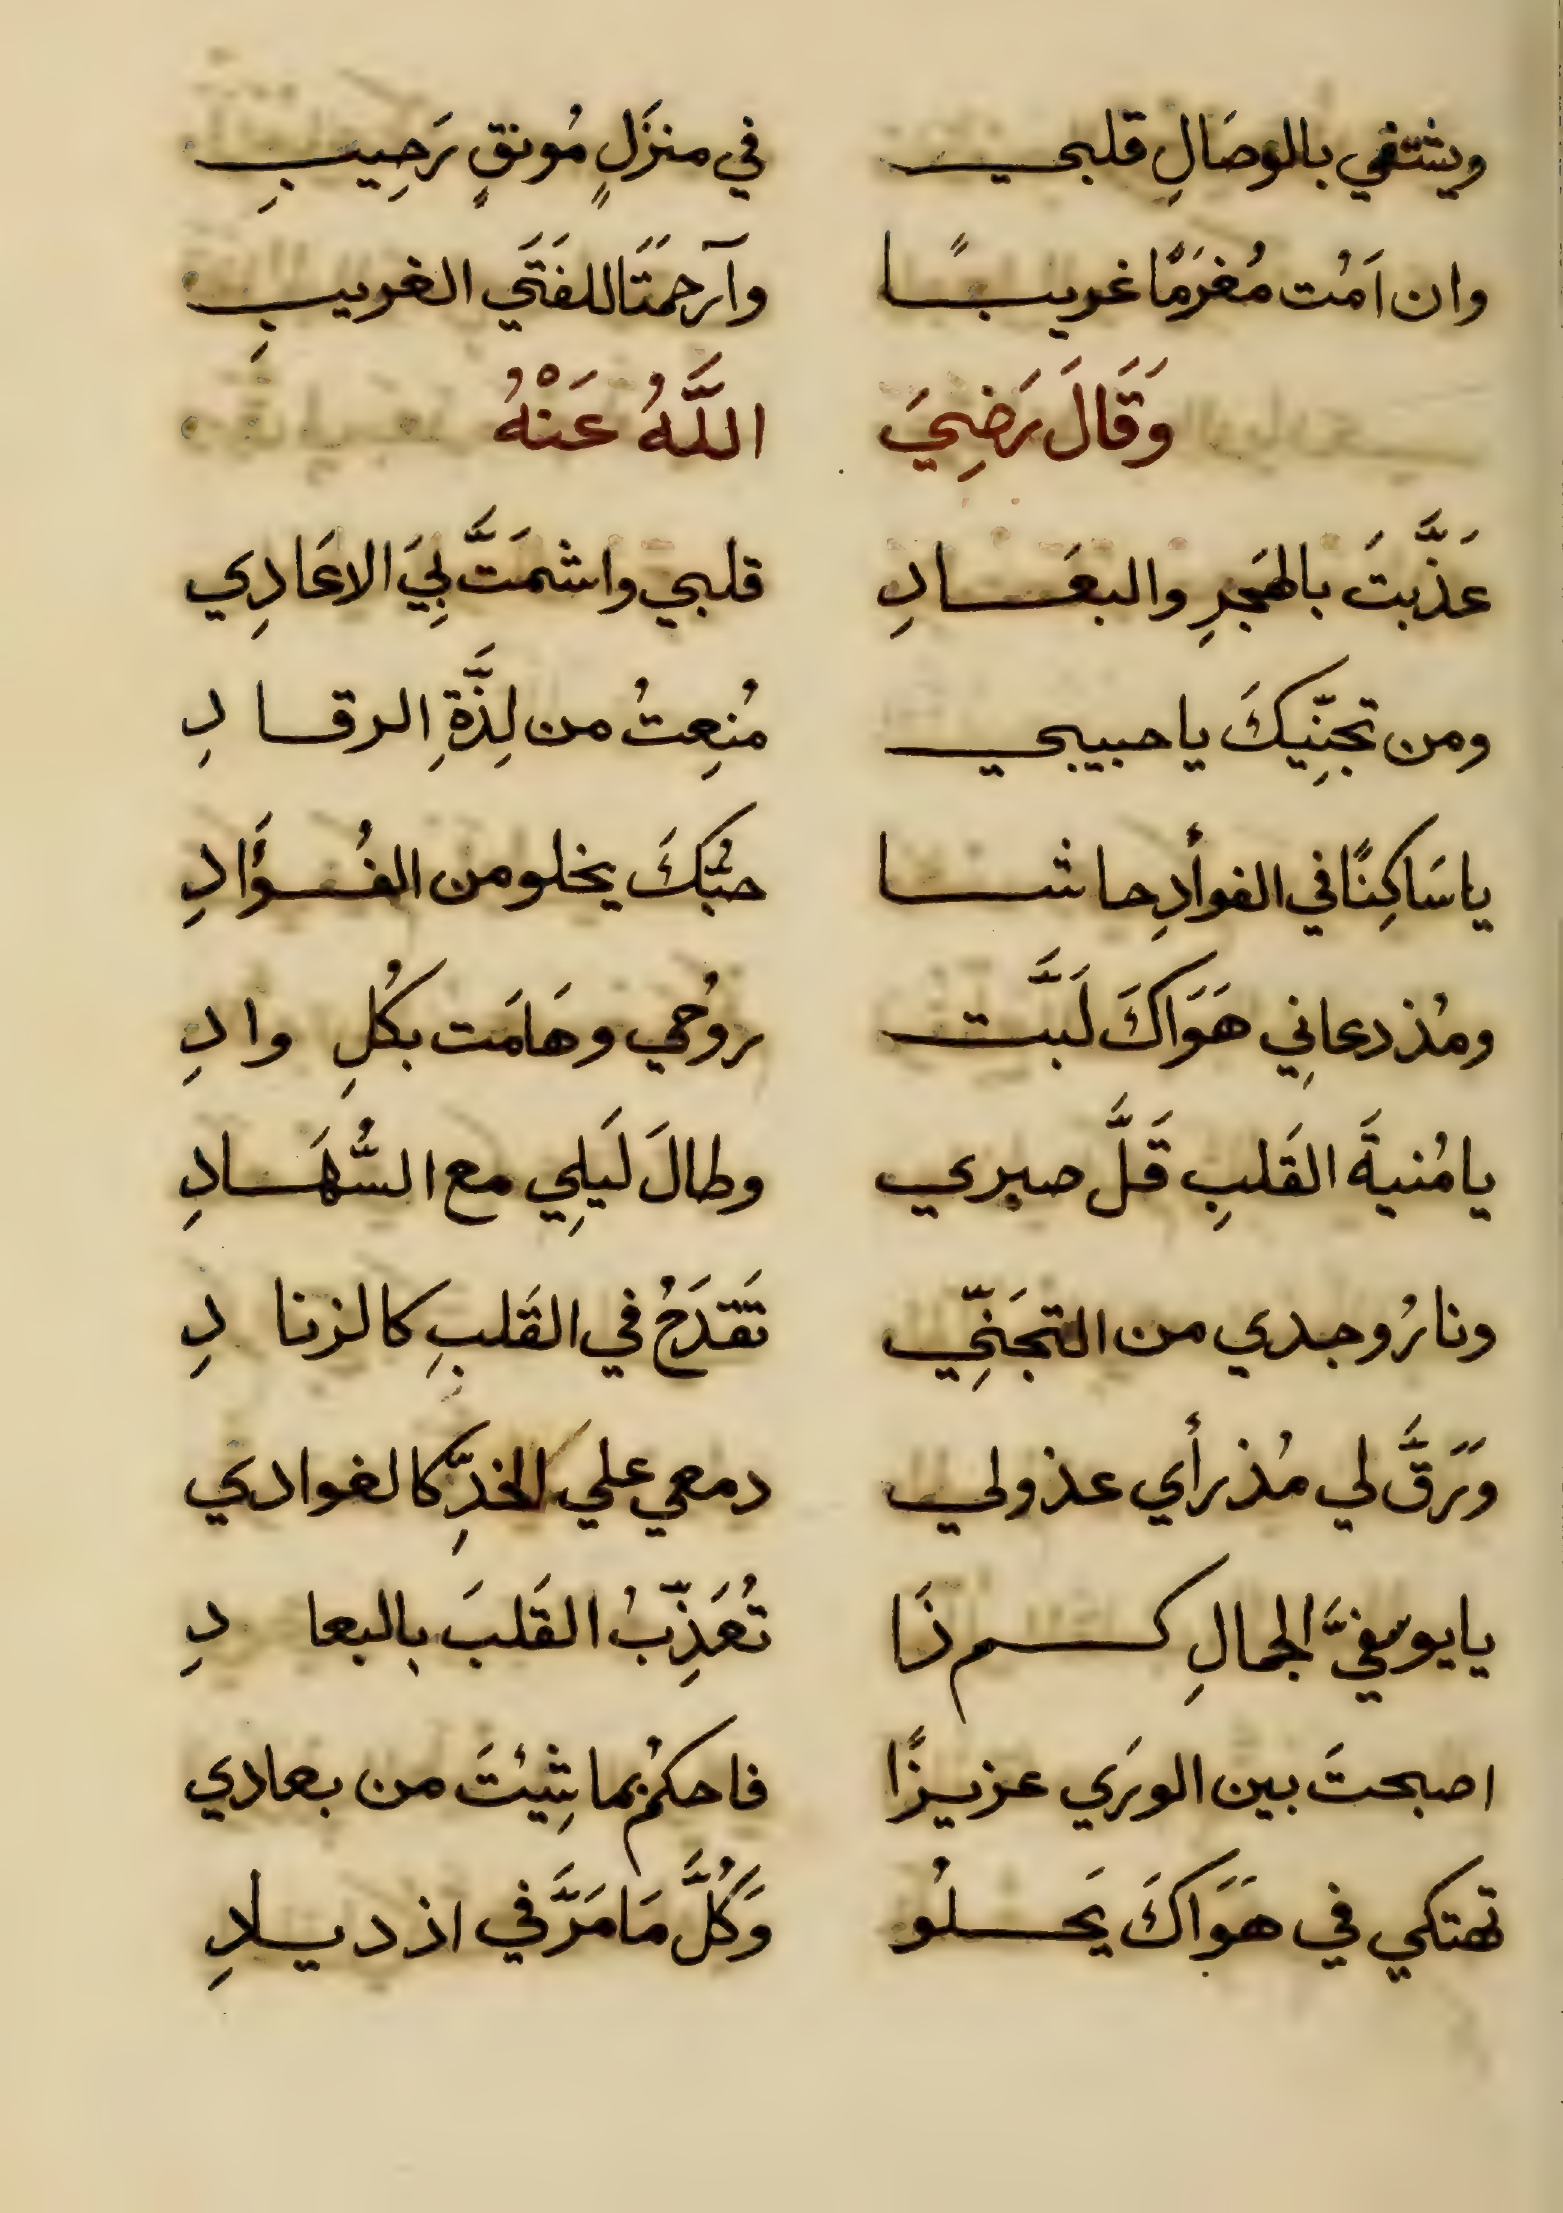 ويشتفي بالوصَالِ قلبي في منزَلٍ مُونقٍ رَحِيبِ
وان اَمُت مُغرَمًا غريبًا وآرحمَتًا للفَتَي الغريبِ
وَقَالَ رَضِيَ اللَّهُ عَنْهُ
عَذَّبتَ بالهَجرِ والبعَادِ قلبي واشمَتَّ بِيَ الاعَادِي
ومن تجنِّيكَ يا حبيبي مُنِعتُ من لِذَّةِ الرقادِ
يا سَاكِنًا في الفوأدِ حاشا حبُّكَ يخلو من الفُؤَادِ
ومُذ دعانِي هَوَاكَ لَبَّت روُحي وهَامَت بكُلِ وادِ
يا مُنيةَ القَلبِ قَلَّ صبري وطالَ لَيلِي مع السُّهَادِ
ونارُ وجدي من التجَنِّي تَقدَحُ في القَلبِ كالزنادِ
وَرَقَّ لي مُذ رأي عذولي دمعي علي الخدِّ كالغوادي
يا يوسفيَّ الجمالِ كم ذَا تُعَذِّبُ القَلبَ بالبعادِ
اصبحتَ بين الورَي عزيزًا فاحكمُ بما شِيئتَ من بعادي
تهتكي في هَوَاكَ يَحلُو وَكُلَّ مَا مَرَّ في ازديادِ